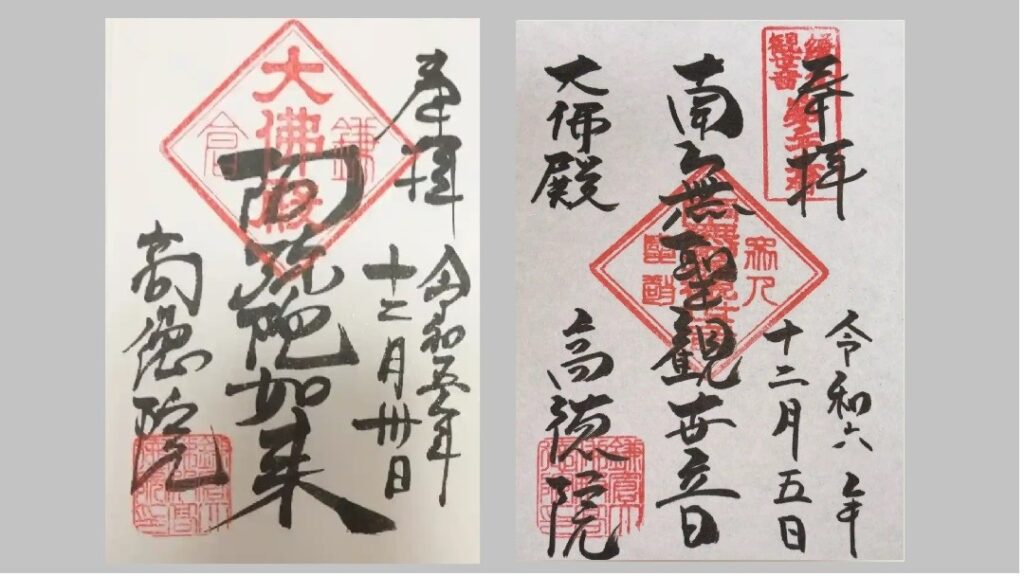 奉拝
令和五年
十二月卅日
大佛殿
鎌倉
阿弥陀如来
高徳院
奉拝
令和六年
十二月五日
観世音
南無聖観世音
大佛殿
高徳院